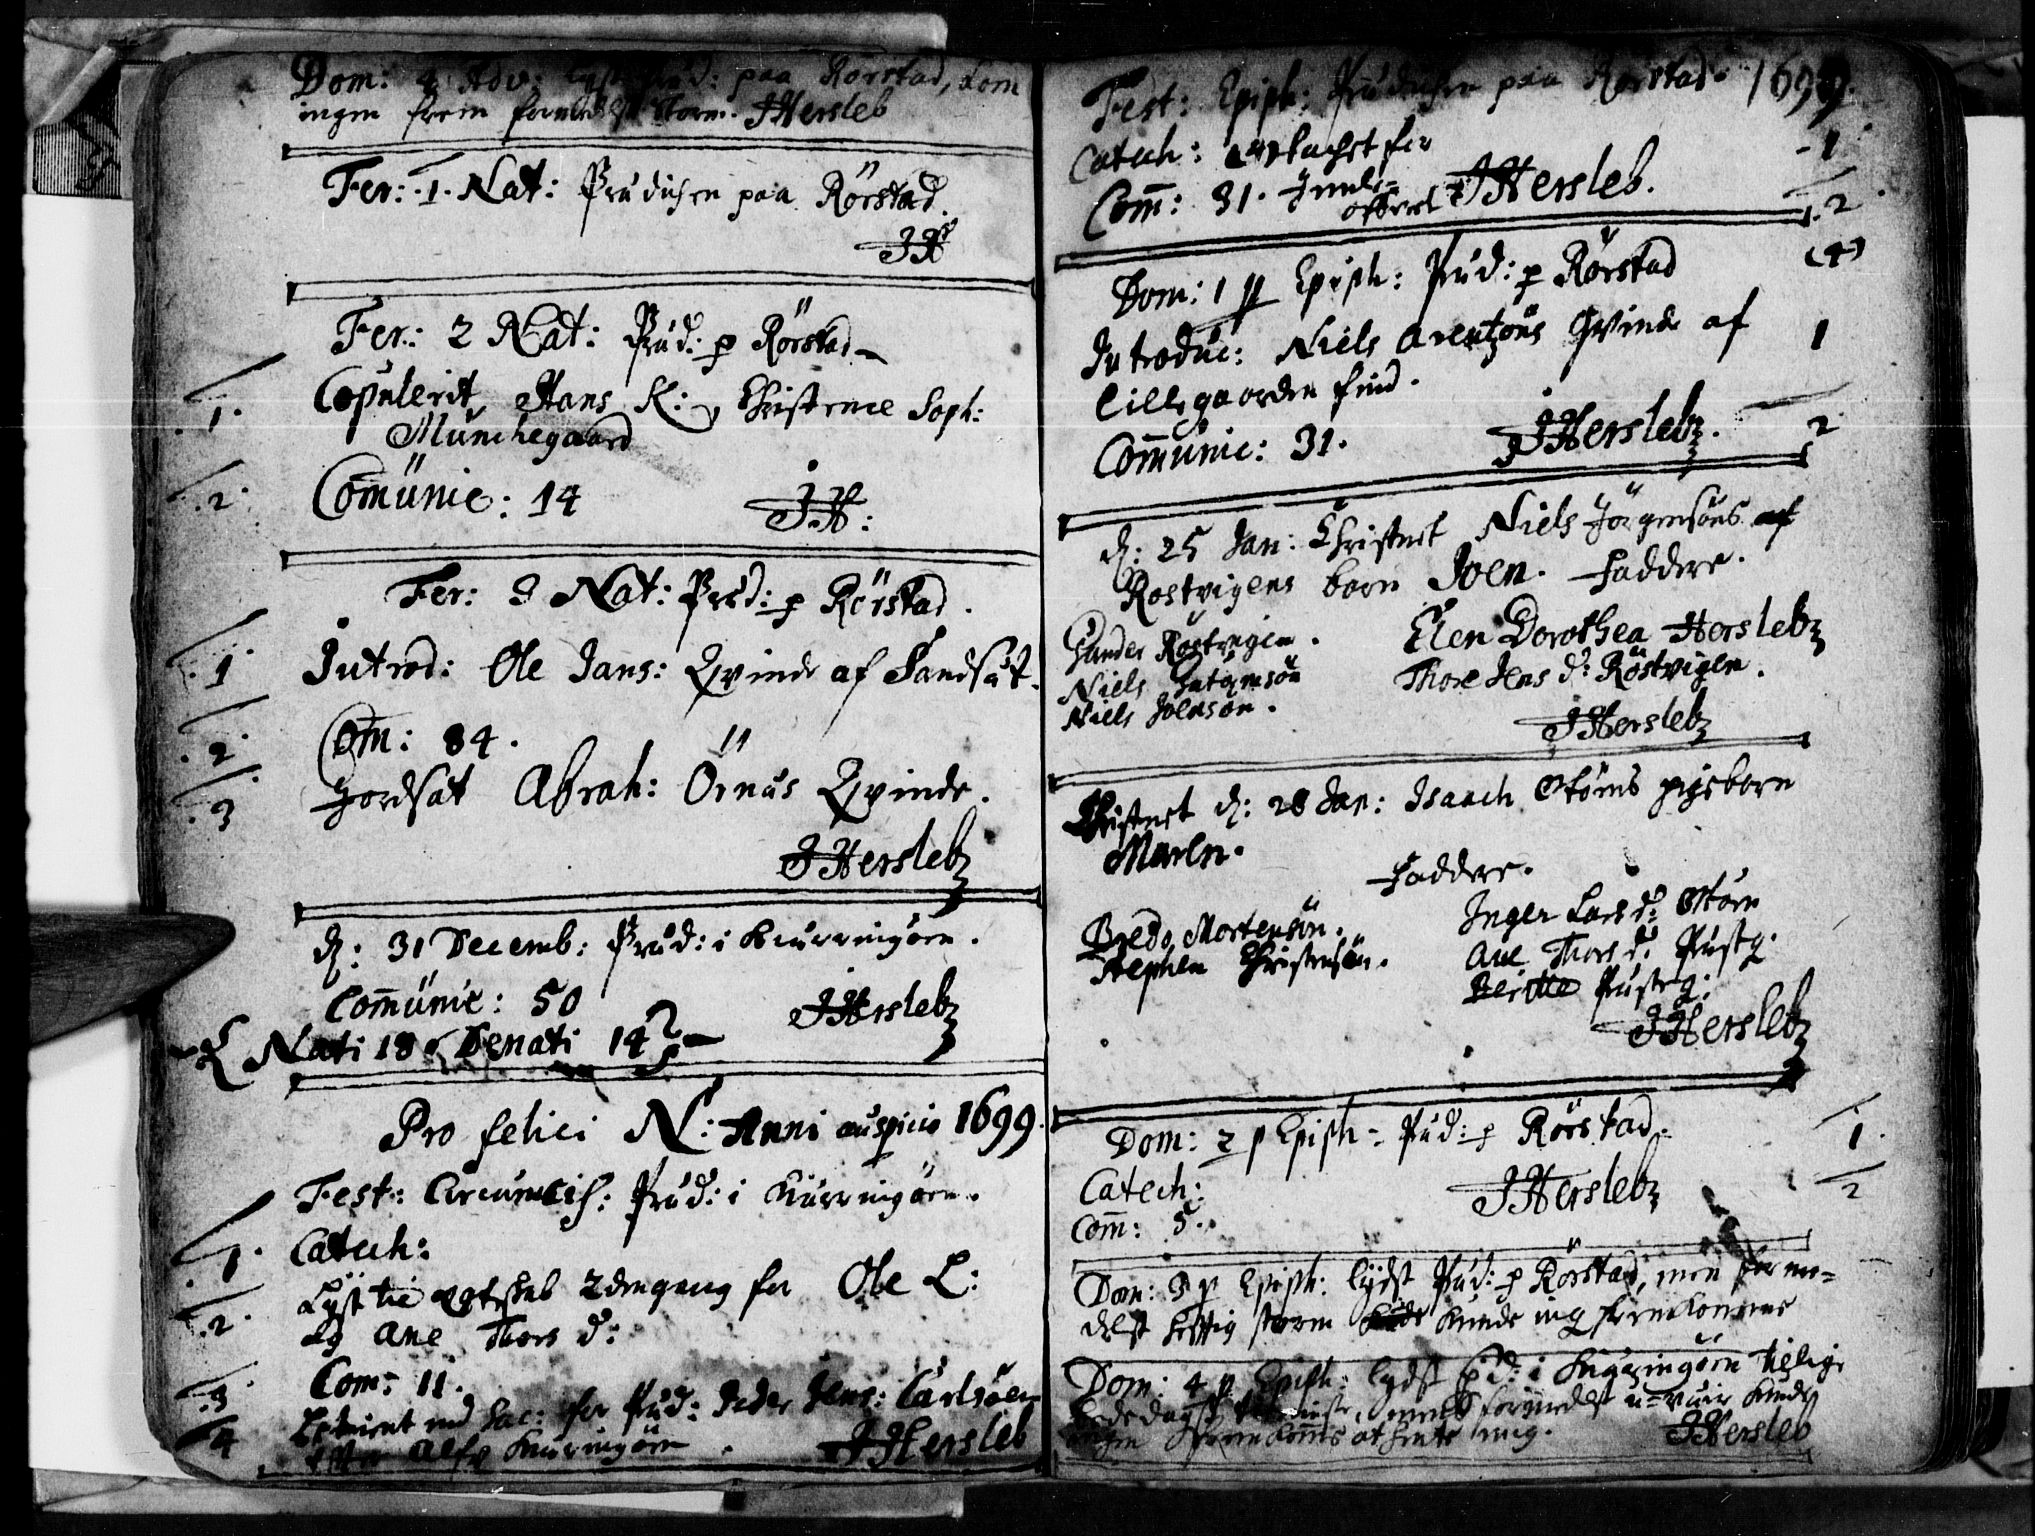 Dom: 4 Adv: lyst Præd: paa Rörstad, kom
ingen frem formedelst storm. JHersleb
Fer: 1. Nat: Prædichen paa Rörstad.
JH
Fer: 2 Nat: Præd: p Rörstad
1. Copulerit Hans K: og Christence Soph:
Münchegaard
2. Com̄unic: 14 JH:
Fer: 3 Nat: Præd: p Rörstad.
1 Introd: Ole Jans: Qvinde af Sandsæt.
2. Com̄: 84.
3 Jordsat Abrah: Örnæs Qvinde.
JHersleb
d: 31 Decemb: Præd: i Kierringöen.
Com̄unic: 50 JHersleb
Nati 18 Denati 14
Pro felici N: Anni auspicio 1699.
Fest: Circumcis: Præd: i Kierringöen.
1. Catech:
2. Lyst til Egteskab 2den gang for Ole L:
og Ane Thors d:
3 Com: 11.
4 med Sac: for Præd: Peder Jens: Carlsöen
Kierringöen. JHersleb
Fest: Epiph: Prædichen paa Rörstad. 1699.
Catech: for 1
Com̄: 31. JHersleb. 2
offeret
Dom: 1 p Epiph: Præd: p Rörstad (4)
Introduc: Niels Arentzöns Qvinde af 1
Lillegaarden sind.
Com̄unic: 31. JHersleb. 2
d: 25 Jan: Christnet Niels Jörgensöns af
Rostvigens barn Joen. Faddere.
Gunder Röstvigen. Elen Dorothea Hersleb
Niels Thore Jens d: Röstvigen.
Niels Joensön. JHersleb
Christnet d: 28 Jan: Isaach Störns pigebarn
Maren. Faddere.
Bredo Mortensön. Inger Lars d: Störn
Stephen Christensön. Ane Thors d: Præstg.
Beritte Præstg:
JHersleb
Dom: 2 p Epiph: Præd: p Rörstad. 1.
Catech: JHersleb 2
Com̄: 5.
Dom: 3 p Epiph: lydst Præd: p Rörstad, men forme=
delst hefftig storm kunde ing fremkomme
Dom: 4 p Epiph: lydst Præd: i Kierringöen tillige
bededags formedelst u-veir kunde
ingen fremkomme at hente mig. JHersleb